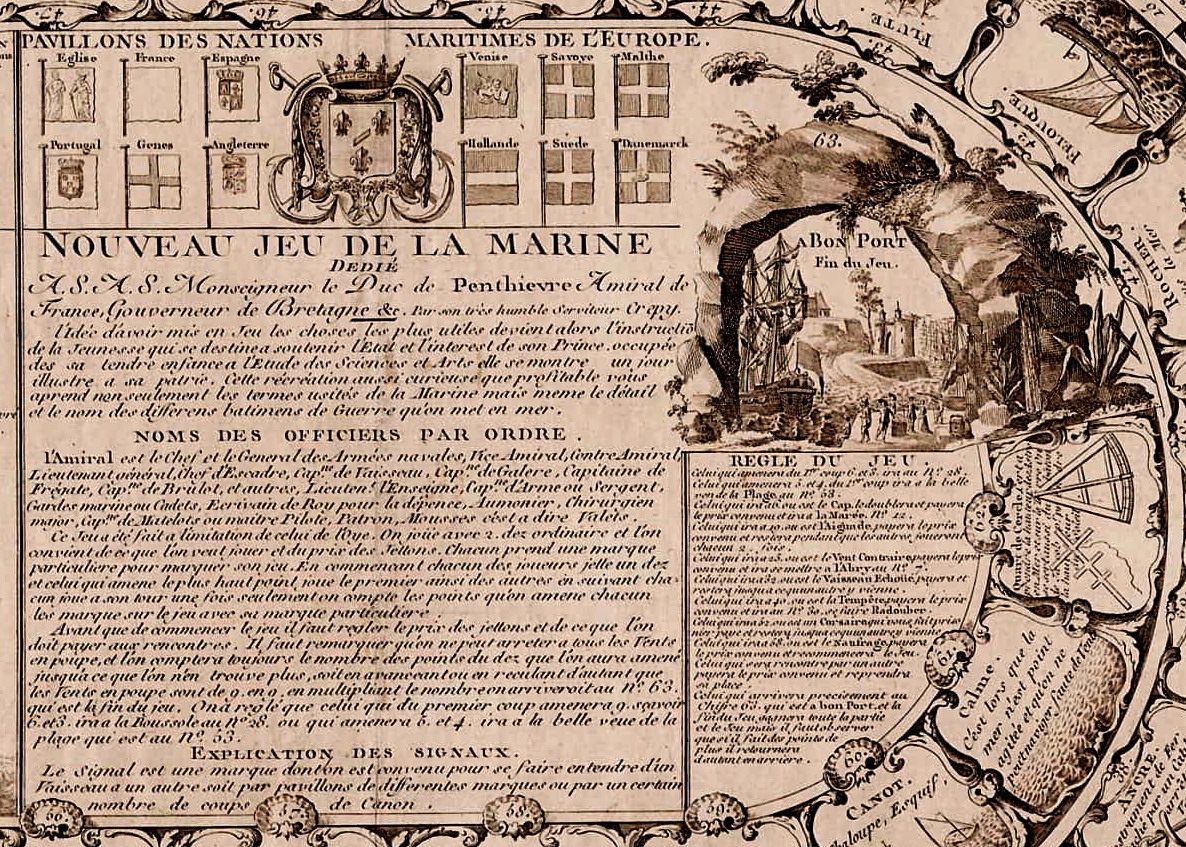 PAVILLONS DES NATIONS MARITIMES DE L'EUROPE.
Eglise France Espagne Venise Savoye Malthe
Portugal Genes Angleterre Hollande Suede Danemarck
NOUVEAU JEU DE LA MARINE
DEDIÉ
A.S.A.S. Monseigneur le Duc de Penthievre Amiral de
France, Gouverneur de Bretagne &c. Par son très humble Serviteur Crepy.
l'Idée d'avoir mis en Jeu les choses les plus utiles devient alors l'instructio
de la Jeunesse qui se destine a soutenir l'Etat et l'interest de son Prince. occupée
des sa tendre enfance a l'Etude des Sciences et Arts elle se montre un jour
illustre a sa patrie. Cette récréation aussi curieuse que profitable vous
aprend non seulement les termes usités de la Marine mais meme le détail
et le nom des differens batimens de Guerre qu'on met en mer.
NOMS DES OFFICIERS PAR ORDRE.
l'Amiral est le Chef et le General des Armées navales, Vice Amiral, Contre Amiral
Lieutenant général, Chef d'Escadre, Capne de Vaisseau, Capne de Galere, Capitaine de
Frégate, Capne de Brulot, et autres, Lieutent l'Enseigne, Capne d'Arme ou Sergent,
Gardes marine ou Cadets, Ecrivain de Roy pour la dépence, Aumonier, Chirurgien
major, Capne de Matelots ou maitre Pilote, Patron, Mousses c'est a dire Valets.
Ce Jeu a été fait a limitation de celui de l'Oye. On joüe avec 2. dez ordinaire et l'on
convient de ce que l'on veut joüer et du prix des Jettons. Chacun prend une marque
particuliere pour marquer son jeu. En commencant chacun des joueurs jette un dez
et celui qui amene le plus haut point joue le premier ainsi des autres en suivant cha-
cun joue a son tour une fois seulement on compte les points qu'on amene chacun
les marque sur le jeu avec sa marque particuliere.
Avant que de commencer le jeu il faut regler le prix des jettons et de ce que l'on
doit payer aux rencontres. Il faut remarquer qu'on ne peut arreter a tous les Vents
en poupe, et l'on comptera toujours le nombre des points du dez que l'on aura amené
jusqu'a ce que l'on n'en trouve plus, soit en avancant ou en reculant d'autant que
les Vents en poupe sont de 9. en 9. en multipliant le nombre on arriveroit au No. 63.
qui est la fin du jeu. On a reglé que celui qui du premier coup amenera 9. scavoir
6. et 3. ira a la Boussole au No. 28. ou qui amenera 5. et 4. ira a la belle veue de la
plage qui est au No. 53.
EXPLICATION DES SIGNAUX.
Le Signal est une marque dont on est convenu pour se faire entendre d'un
Vaisseau a un autre soit par pavillons de differentes marques ou par un certain
nombre de coups de Canon.
63.
A BON PORT
Fin du Jeu.
REGLE DU JEU.
Celui qui amen. du 1er coup 6. et 3. ira au No. 28.
Celui qui amenera 5. et 4. du 1er coup ira a la belle
veu de la Plage au No. 53.
Celui qui ira a 6. ou est le Cap, le doublera et payera
le prix convenu et ira a la Marée, No. 12.
Celui qui ira a 19. ou est l'Aiguade, payera le prix
convenu et restera pendant que les autres joueront
chacun 2. fois.
ou est le Vent Contraire, payera le prix
convenu et ira se mettre a l'Abry au No.
Celui qui ira a 32. ou est le Vaisseau Echoüé, payera et
restera jusqu'a ce qu'un autre y vienne.
Celui qui ira a ou est la Tempête, payera le prix
convenu et ira au No. 30. se faire Radouber
Celui qui ira a 52. ou est un Corsaire qui vous fait priso-
nier paye et restera jusqu'a ce qu'un autre y vienne
Celui qui ira a 58. ou est le Naufrage, payera
le prix convenu et recommencera le Jeu.
Celui qui sera rencontré par un autre
payera le prix convenu et reprendra
sa place.
Celui qui arrivera precisement au
Chifre 63. qui est a bon Port, et la
fin du Jeu, gagnera toute la partie
et le Jeu mais il faut observer
que s'il fait des points de
plus il retournera
d'autant en arriere.
47. 46. 45. 44.
FLUTE.
43.
FELOUQUE.
42.
ROCHER
61.
62.
Calme.
C'est lors que la
mer n'est point
agitée et qu'on ne
peut naviger, faute de Vent
60.
CANOT.
Chaloupe, Esquif,
ANCRE.
59. 58. 57. 56.